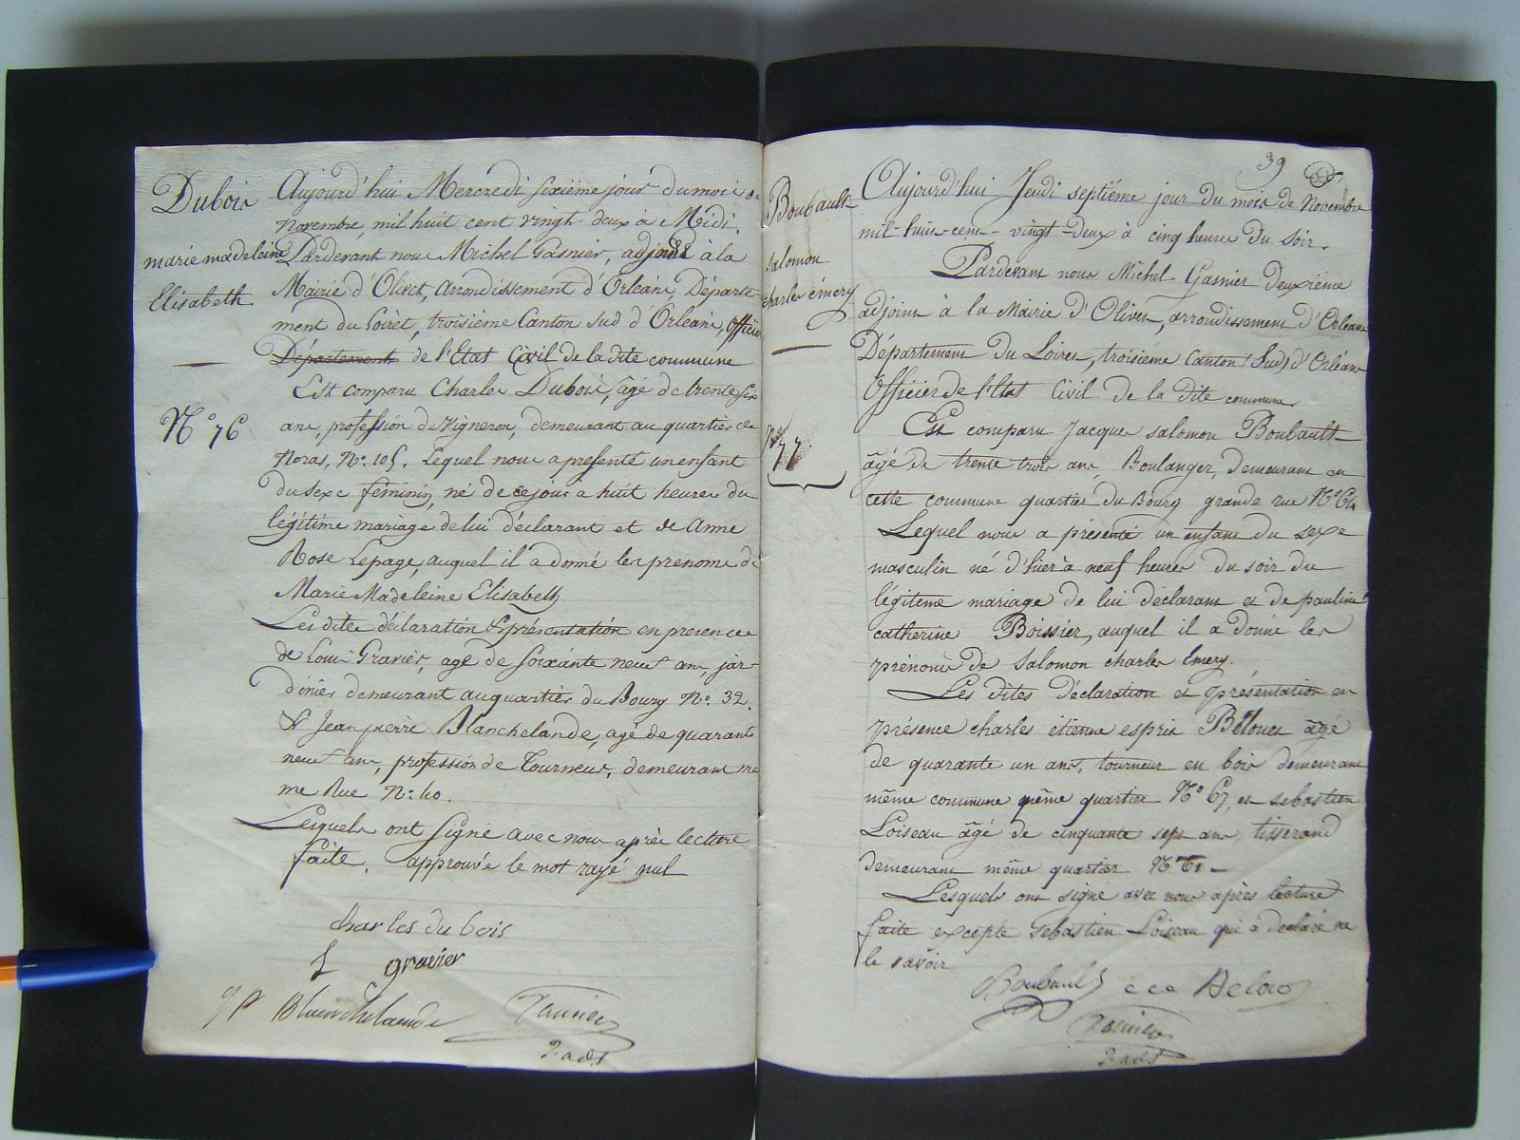 Dubois
marie madeleine
Elisabeth
N° 76
Aujourd'hui Mercredi sixième jour du mois de
Novembre, mil huit cent vingt-deux à Midi.
Pardevant nous Michel Gasnier, adjoint à la
Mairie d'Olivet, arrondissement d'Orléans, Départe-
ment du Loiret, troisième Canton sud d'Orléans, officier
Département de l'Etat Civil de la dite commune
Est comparu Charles Dubois, âgé de trente six
ans, profession de Vigneron, demeurant au quartier de
Noras, N°. 105. Lequel nous a présenté un enfant
du sexe féminin, né de ce jour a huit heures du
légitime mariage de lui déclarant et de Anne
Rose Lepage, auquel il a donné les prenoms de
Marie Madeleine Elisabeth
Les dites déclaration & présentation en presence
de Louis Gravier, agé de soixante neuf ans, jar-
dinier demeurant au quartier du Bourg N°. 32.
& Jean pierre Blanchelande, agé de quarante
neuf ans, profession de Tourneur, demeurant mê
me Rue N°. 40.
Lesquels ont signé avec nous après lecture
faite. approuvé le mot rayé nul
Charles dubois
L gravier
J P Blanchelande
Gasnier
2. adjt
39
Boubault
salomon
charles émery
N° 77
Aujourd'hui Jeudi septiéme jour du mois de Novembre
mil-huit-cent-vingt-deux à cinq heures du soir.
Pardevant nous Michel Gasnier Deuxième
adjoint à la Mairie d'Olivet, arrondissement d'Orléans
Département du Loiret, troisième Canton (Sud) d'Orléans
Officier de l'Etat Civil de la dite commune
Est comparu Jacques salomon Boubault
âgé de trente trois ans, Boulanger, demeurant en
cette commune quartier du Bourg grande rue N°
Lequel nous a présenté un enfant du sexe
masculin né d'hier à neuf heures du soir du
légiteme mariage de lui déclarant et de pauline
catherine Boissier, auquel il a donné les
prénoms de salomon charles Emery.
Les dites déclaration et présentation en
présence charles étienne esprit Beloue âgé
de quarante un ans, tourneur en bois demeurant
même commune même quartier N° 67, et sebastien
Loiseau âgé de cinquante sept ans tisserand
demeurant même quartier N°
Lesquels ont signé avec nous après lecture
faite excepté Sebastien Loiseau qui a déclaré ne
le savoir
Boubault
Gasnier
2. adjt